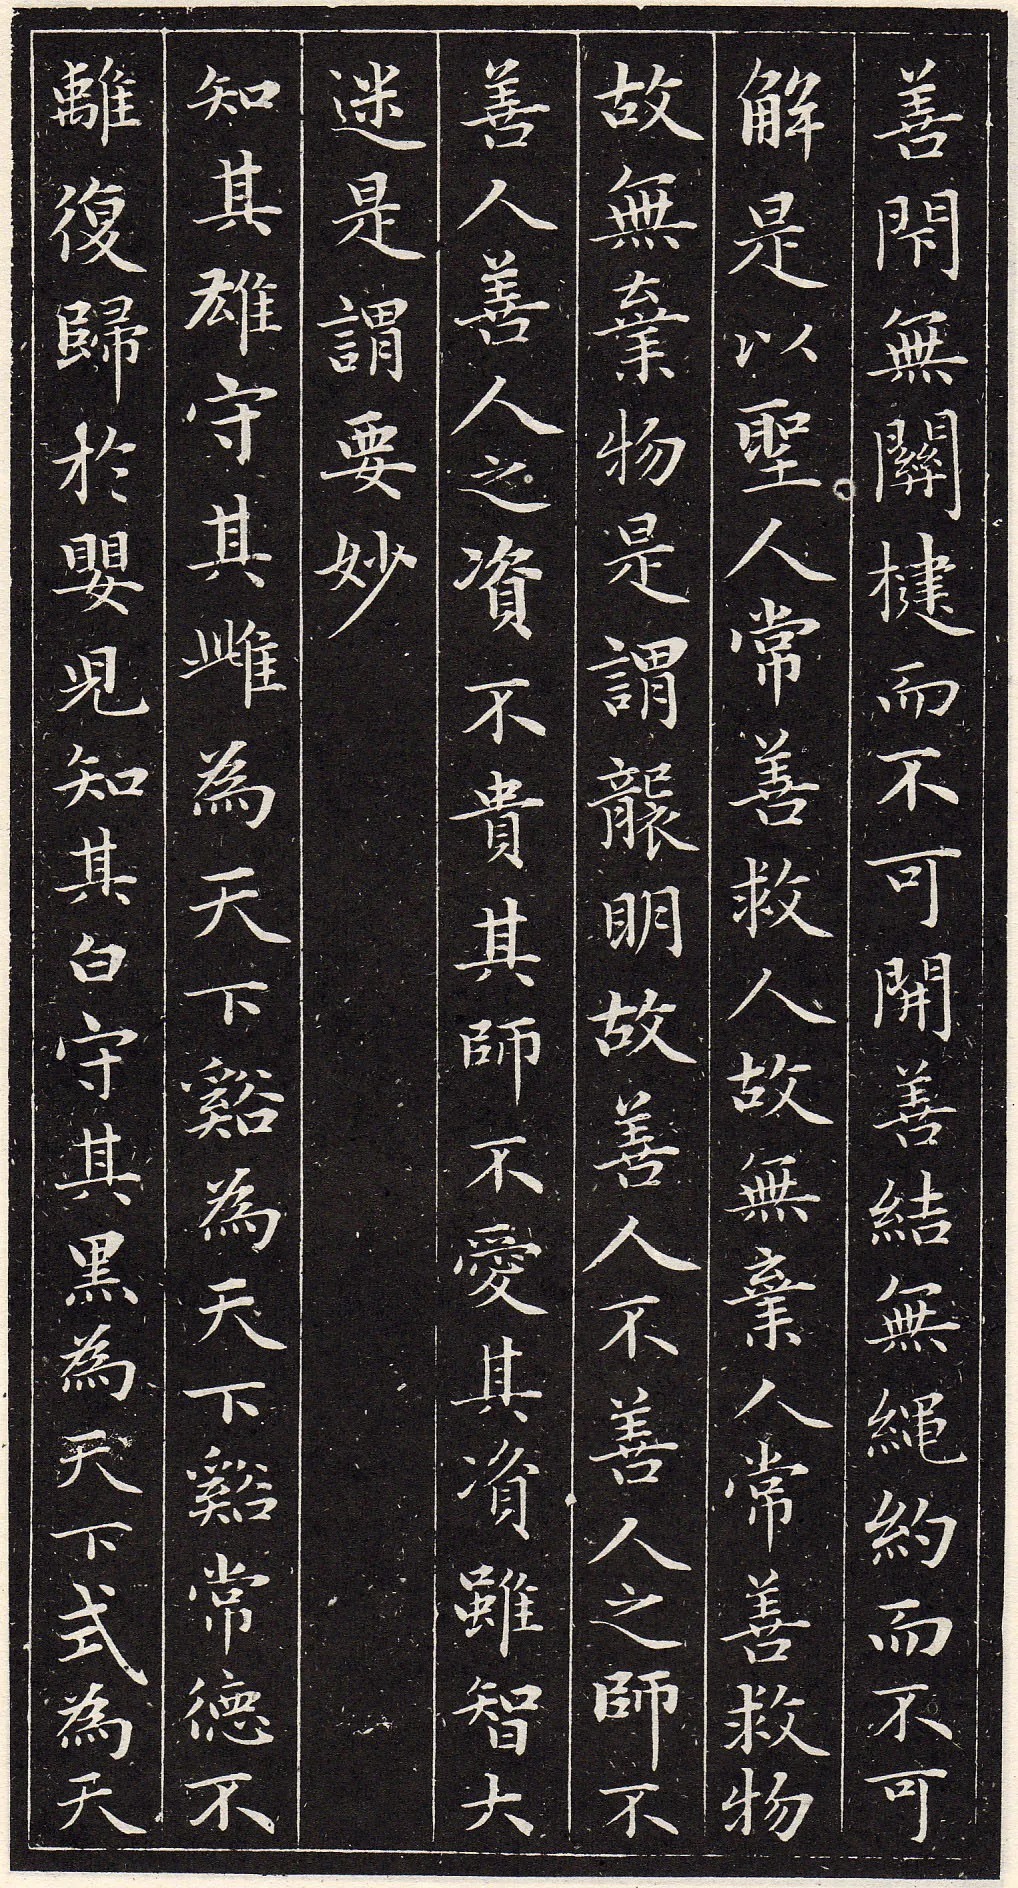 善閇無關揵而不可開善結無繩約而不可
解是以聖人常善救人故無棄人常善救物
故無棄物是謂襲明故善人不善人之師不
善人善人之資不貴其師不愛其資雖智大
迷是謂要妙
知其雄守其雌為天下谿為天下谿常德不
離復歸於嬰兒知其白守其黒為天下式為天